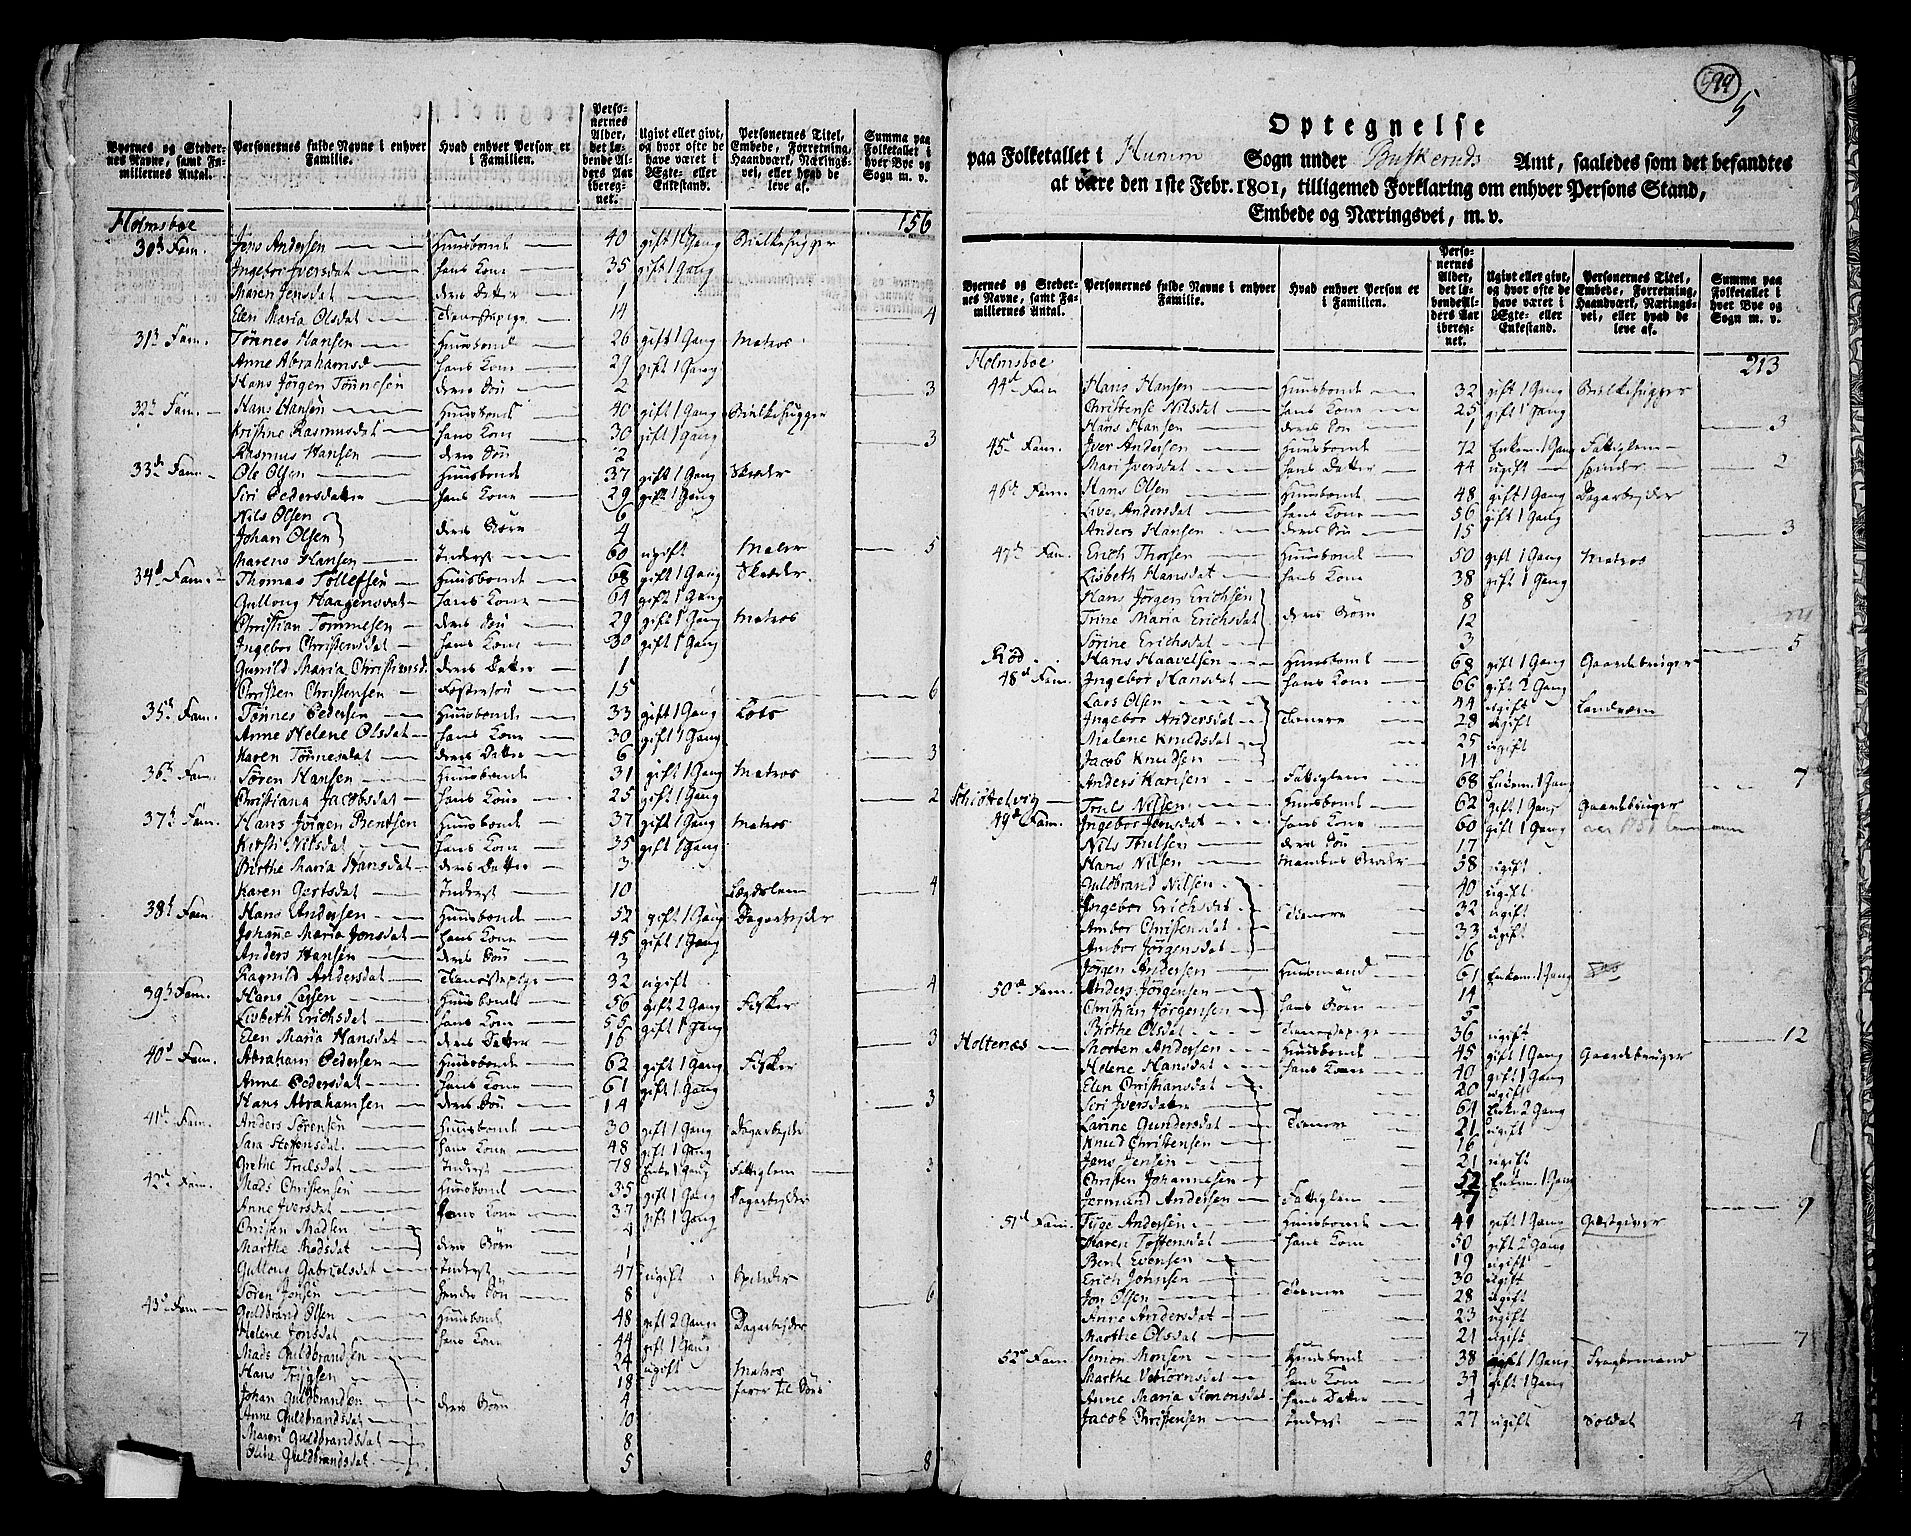 Byernes og Steder-nes Navne, samt Fa-millernes Antal. | Personernes fulde Navne i enhver Familie. | Hvad enhver Person er i Familien. | Perso-nernes Alder, det lø-bende Al-ders Aar ibereg-net. | Ugivt eller givt, og hvor ofte de have været i Ægte- eller Enkestand. | Personernes Titel, Embede, Forretning, Haandværk, Nærings-vei, eller hvad de leve af. | Summa paa Folketallet i hver Bye og Sogn m. v.
Holmsboe 156
30th Fam. Jens Andersen Huusbonde 40 gift 1 Gang Bielkehugger
Ingebor Iversdat hans Kone 35 gift 1 Gang
Maren Jensdat deres Datter 1
Elen Maria Olsdat Tienestepige 14 4
31th Fam. Tønnes Hansen Huusbonde 26 gift 1 Gang Matros
Anne Abrahamsd hans Kone 29 gift 1 Gang
Hans Jørgen Tønnesen deres Søn 2 3
32th Fam. Hans Hansen Huusbonde 40 gift 1 Gang Bielkehugger
Kristine Rasmusdat hans Kone 30 gift 1 Gang
Rasmus Hansen deres Søn 2 3
33de Fam. Ole Olsen Huusbonde 37 gift 1 Gang Skræder
Siri Pedersdatter hans Kone 29 gift 1 Gang
Nils Olsen 6
Johan Olsen deres Børn 4
Marens Hansen Inderst 60 ugift Maler 5
34d Fam. Thomas Tollefsen Huusbonde 68 gift 1 Gang Skræder
Gullong Haagensdat hans Kone 64 gift 1 Gang
Christian Tommesen deres Søn 29 gift 1 Gang Matros
Ingebor Christensdat hans Kone 30 gift 1 Gang
Gunild Maria Christiansd. deres Datter 1
Christen Christensen Fostersøn 15 6
35d Fam. Tønnes Pedersen Huusbonde 33 gift 1 Gang Lots
Anne Helene Olsdat hans Kone 30 gift 1 Gang
Karen Tønnesdat deres Datter 6 3
36th Fam. Søren Hansen Huusbonde 31 gift 1 Gang Matros
Christiana Jacobsdat hans Kone 25 gift 1 Gang 2
37th Fam. Hans Jørgen Bentsen Huusbonde 37 gift 1 Gang Matros
Kirsti Nilsdat hans Kone 35 gift 1 Gang
Birthe Maria Hansdat deres Datter 3
Karen Gertsdat Inderst 10 Lægdslem 4
38th Fam. Hans Andersen Huusbonde 52 gift 1 Gang Dagarbejder
Johanne Maria Jonsdat hans Kone 45 gift 1 Gang
Anders Hansen deres Søn 3
Ragnild Andersdat Tienestepige 32 ugift 4
39th Fam. Hans Larsen Huusbonde 56 gift 2 Gang Fisker
Lisbeth Erichsdat hans Kone 55 gift 1 Gang
Elen Maria Hansdat deres Datter 16 3
40d Fam. Abraham Pedersen Huusbonde 62 gift 1 Gang Fisker
Anne Pedersdat hans Kone 61 gift 1 Gang
Hans Abrahamsen deres Søn 14 3
41d Fam. Anders Sørensen Huusbonde 30 gift 1 Gang Dagarbejder
Sara Stefensdat hans Kone 48 gift 1 Gang
Grethe Trulsdat Inderst 78 Enke 1 Gang Fattiglem 3
42d Fam. Mads Christensen Huusbonde 35 gift 1 Gang Dagarbejder
Anne Iversdat hans Kone 37 gift 1 Gang
Christen Madsen 4
Marthe Madsdat deres Børn 1
Gullong Gabrielsdat Inderst 47 ugift Spinder
Søren Jonsen hendes Søn 8 6
43d Fam. Guldbrand Olsen Huusbonde 48 gift 2 Gange Dagarbejder
Helene Jonsdat hans Kone 44 gift 1 Gang
Mads Guldbrandsen 24 ugift Matros
Hans 18 farer til Søes
Johan Guldbrandsen deres Børn 4
Anne Guldbrandsdat 10
Maren Guldbrandsdat 8
Guldbrandsdat 5 8
599
5
Optegnelse
paa Folketallet i Hurum Sogn under Buskeruds Amt, saaledes som det befandtes
at være den 1ste Febr. 1801, tilligemed Forklaring om enhver Persons Stand,
Embede og Næringsvei, m. v.
Byernes og Steder-nes Navne, samt Fa-millernes Antal. | Personernes fulde Navne i enhver Familie. | Hvad enhver Person er i Familien. | Perso-nernes Alder, det lø-bende Al-ders Aar ibereg-net. | Ugivt eller givt, og hvor ofte de have været i Ægte- eller Enkestand. | Personernes Titel, Embede, Forretning, Haandværk, Nærings-vei, eller hvad de leve af. | Summa paa Folketallet i hver Bye og Sogn m. v.
Holmsboe 213
44d Fam Hans Hansen Huusbonde 32 gift 1 Gang Bielkehugger
Christense Nilsdat hans Kone 25 gift 1 Gang
Hans Hansen deres Søn 1 3
45d Fam. Iver Andersen Huusbonde 72 Enkem. 1 Gang Fattiglem
Mari Iversdat hans Datter 44 ugift spinder 2
46d Fam. Hans Olsen Huusbonde 48 gift 1 Gang Dagarbejder
Live Andersdat hans Kone 56 gift 1 Gang
Anders Hansen deres Søn 15 3
47d Fam. Erich Thorsen Huusbonde 50 gift 1 Gang Matros
Lisbeth Hansdat hans Kone 38 gift 1 Gang
Hans Jørgen Erichsen 8
Trine Maria Erichsdat deres Børn 12
Sørine Erichsdat 3 5
Rød Hans Haavelsen Huusbonde 68 gift 1 Gang Gaardebruger
48d Fam. Ingebor Hansdat hans Kone 66 gift 2 Gang
Lars Olsen 44 ugift Landværn
Ingebor Andersdat Tienere 28 ugift
Malene Knudsdat 25 ugift
Jacob Knudsen 14
Anders Karlsen Fattiglem 68 Enkem. 1 Gang 7
Schiøttelvig Truls Nilsen Huusbonde 62 gift 1 Gang Gaardebruger
49d Fam. Ingebor Jonsdat hans Kone 60 gift 1 Gang
Nils Trulsen deres Søn 17
Hans Nilsen Mandens Broder 58 ugift
Guldbrand Nilsen 40 ugift
Ingebor Erichsdat Tienere 32 ugift
Ambor Christensdat 33 ugift
Ambor Jørgensdat 16
Jørgen Andersen Huusmand 61 Enkem. 1 Gang
50d Fam. Anders Jørgensen 14
Christian Jørgensen hans Børn 5
Birthe Olsdat Tienestepige 36 ugift 12
Holtenæs Morten Andersen Huusbonde 45 gift 1 Gang Gaardebruger
Helene Hansdat hans Kone 40 gift 1 Gang
Elen Christiansdat 20 ugift
Siri Iversdatter 64 Enke 2 Gang
Larine Gundersdat Tienere 21 ugift
Knud Christensen 16
Jens Jensen 21 ugift
Christen Johannesen 52 Enkem. 1 Gang
Jermund Andersen Fattiglem 7 9
51d Fam. Tyge Andersen Huusbonde 41 gift 1 Gang Giæstgiver
Maren Tostensdat hans Kone 50 gift 2 Gang
Bent Evensen 19 ugift
Erich Johnsen 30 ugift
Jon Olsen Tienere 28 ugift
Anne Andersdat 23 ugift
Marthe Olsdat 21 ugift 7
52d Fam. Simon Monsen Huusbonde 38 gift 1 Gang Fragtemand
Marthe Vebiornsdat hans Kone 31 gift 1 Gang
Anne Maria Simonsdat hans Datter 4
Jacob Christensen Inderst 27 ugift Soldat 4